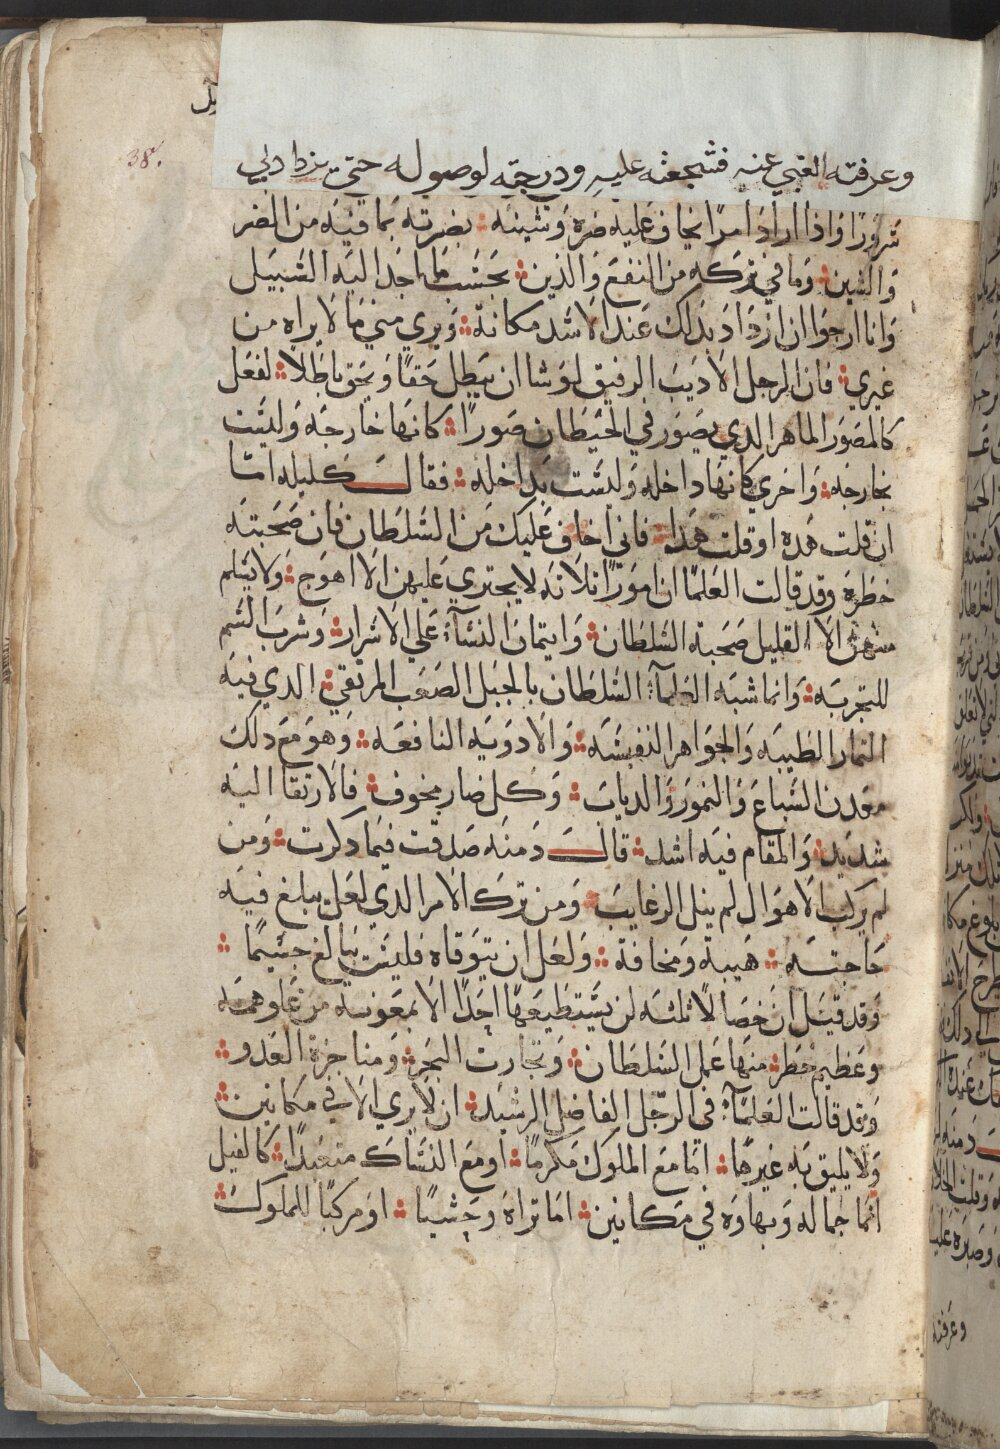 38.
وعرفته الغبي عنه فشجعته عليه ودرجته لوصوله حتي يزدادبي
سرورًا وَاذا اراد امرًا يخاف عَليه ضره وَشينه بضرته بما فيَه من الضر
وَالشين وَمَا في تركه من النفع وَالذين بحَسب ما اجَد اليَه السَبيَل
وَانا ارجوَا ان ازدَادَ بذلك عَند الاشد مكانة وَيري مني مَا لا يراه من
غيري فان الرجل الاديَب الرفيق لوَشا ان يبَطل حَقًا وَيحَق باطلًا لفعَل
كالمصَوَر الماهر الدي يصَوَر في الحَيَطان صَورًا كانهَا خَارجَه وَليسَت
بخارجه وَاخري كانهَا داخله وَليسَت بدَاخلة فقالَ كليله امَا
ان قلت هَده او قلت هَدا فاني اخاف عَليك مَن السَلطَان فان صَحَبتَه
خطرَه وقد قالت العَلمَا ان امَورًا ثلاثَه لا يجتري عَليهَن الا اهوَج وَلا يسَلم
منهَن الا القليل صَحَبة السَلطَان وَايتمان النسَآء عَلي الاسَرار وَشرب السَم
للتجربَه وَانما شبَه العَلمآء السَلطَان بالجبَل الصَعَب المرتقي الدي فيَه
الثمار الطيبَه وَالجوَاهر النفيسَه وَالادوَيَه النافعَه وَهوَ مَع دلك
معَدن السَباعَ وَالنموَر وَالديابَ وَكل ضار مخوف فالارتقا اليَه
شديَد وَالمقام فيَه اشد قالَ دَمنَه صَدقت فيَما دكرت وَمن
لم يركب الاهوَال لم ينل الرغايبَ وَمن تركَ الامر الدي لعَل يبلغ فيَه
حَاجتَه هَيبَة وَمخافة وَلعَل ان يتوَقاه فليسَ ببَالغ جسَيمًا
وَقد قيَل ان خصَالًا ثلثَه لن يسَتطيَعَهَا احَدًا الا بمعَونه من عَلو همَه
وعَظيم خطر منهَا عَمل السَلطَان وَتجارت البحَر وَمناجزة العَدو
وَقد قالت العَلمَآء في الرجَل الفاضل الرشيد ان لا يري الا في مكانين
وَلا يليق بَه غيرهَا امَا مَع الملوك مَكرمًا اوَ مَع النسَاكَ متعَبدًا كالفيل
انمَا جمَا له وَبهاوَه في مَكانين امَا تراهَ وَحَشيًا اوَ مركبًا للملوكَ